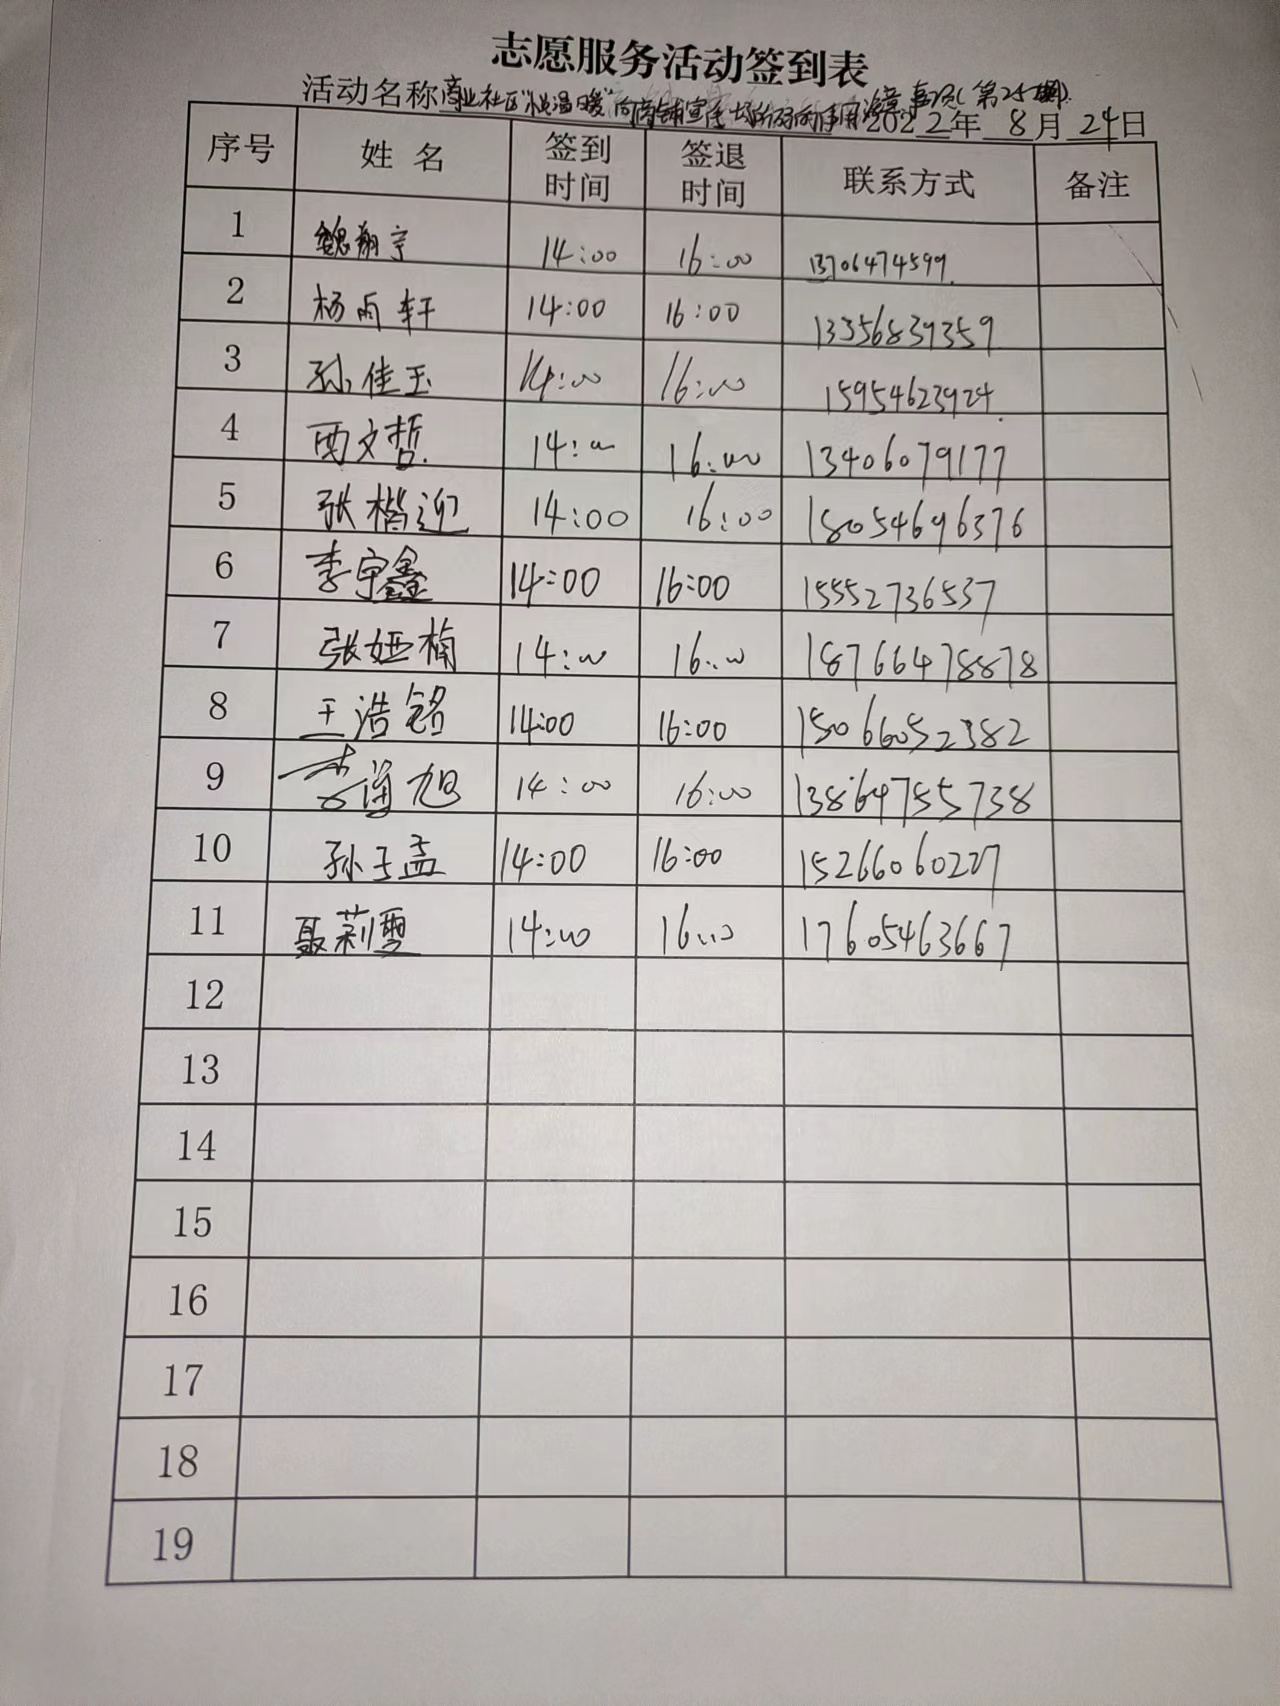 志愿服务活动签到表
活动名称 商业社区"悦温暖"向商铺宣传场所码的使用注意事项(第25期)
2022年 8月 24日
序号 姓名 签到时间 签退时间 联系方式 备注
1 魏翔宇 14:00 16:00 13706474599
2 杨雨轩 14:00 16:00 13356839359
3 孙佳玉 14:00 16:00 15954623924
4 贾文哲 14:00 16:00 13406079177
5 张楷迎 14:00 16:00 18054696376
6 李宇鑫 14:00 16:00 15552736537
7 张娅楠 14:00 16:00 18766478878
8 王浩铭 14:00 16:00 15066052382
9 李 旭 14:00 16:00 13864755738
10 孙子孟 14:00 16:00 15266060227
11 聂莉雯 14:00 16:00 17605463667
12
13
14
15
16
17
18
19